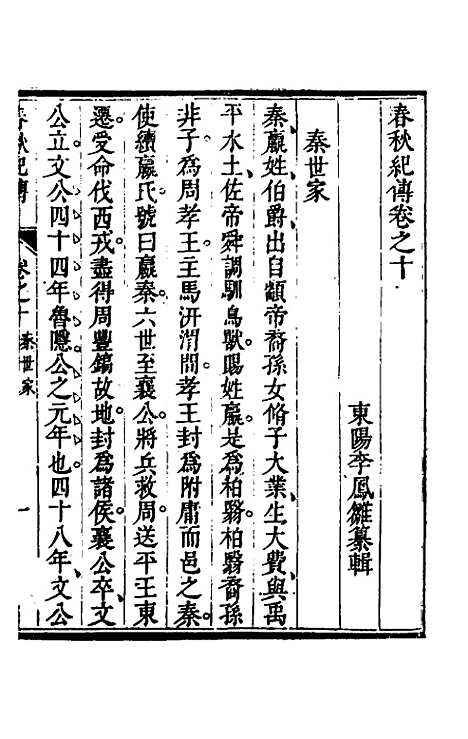 春秋紀傳卷之十
東陽李鳳雛纂輯
秦世家
秦嬴姓伯爵出自顓帝裔孫女脩子大業生大費與禹
平水土佐帝舜調馴鳥獸賜姓嬴是為柏翳柏翳裔孫
非子為周孝王主馬汧渭間孝王封為附庸而邑之秦
使續嬴氏號曰嬴秦六世至襄公將兵救周送平王東
遷受命伐西戎盡得周豐鎬故地封為諸侯襄公卒文
公立文公四十四年魯隱公之元年也四十八年文公
春秋紀傳 卷之十 秦世家 一